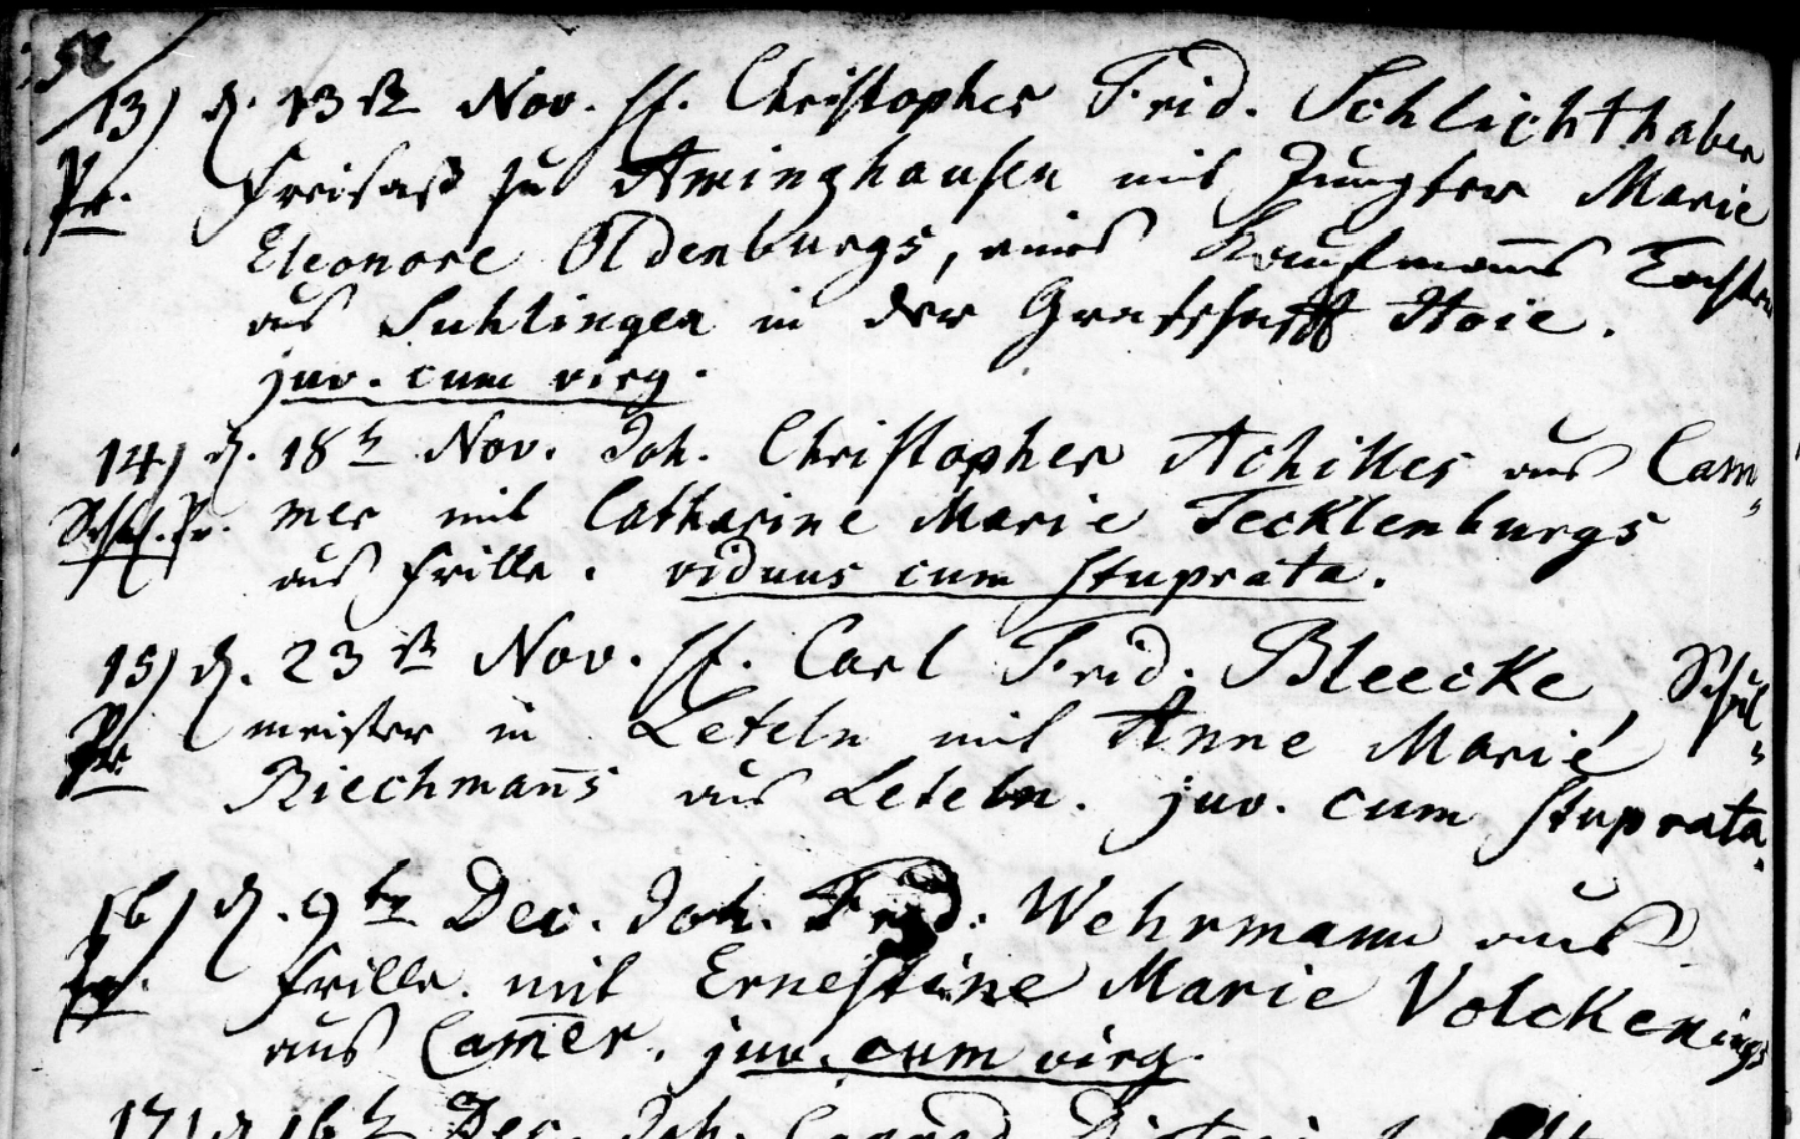 13) d. 13ten Nov. H. Christopher Frid. Schlichthaber
Pr. Freisaß zu Aminghausen mit Jungfer Marie
Eleonore Oldenburgs, eines Kaufmann̄s Tochter
aus Suhlingen in der Grafschafft Hoie.
juv. cum virg.
14) d. 18t Nov. Joh. Christopher Achilles aus Cam„
mer mit Catharine Marie Tecklenburgs
aus Frille. viduus cum stuprata.
15) d. 23ten Nov. H. Carl Frid. Bleecke, Schul„
Pr. meister in Leteln mit Anne Marie
Riechman̄s aus Leteln. juv. cum stuprata.
16) d. 9ten Dec. Joh. Frid. Wehrmann aus
Frille mit Ernestine Marie Volckenings
aus Cam̄er. juv. cum virg.
17) d. 16t Dec. Joh.